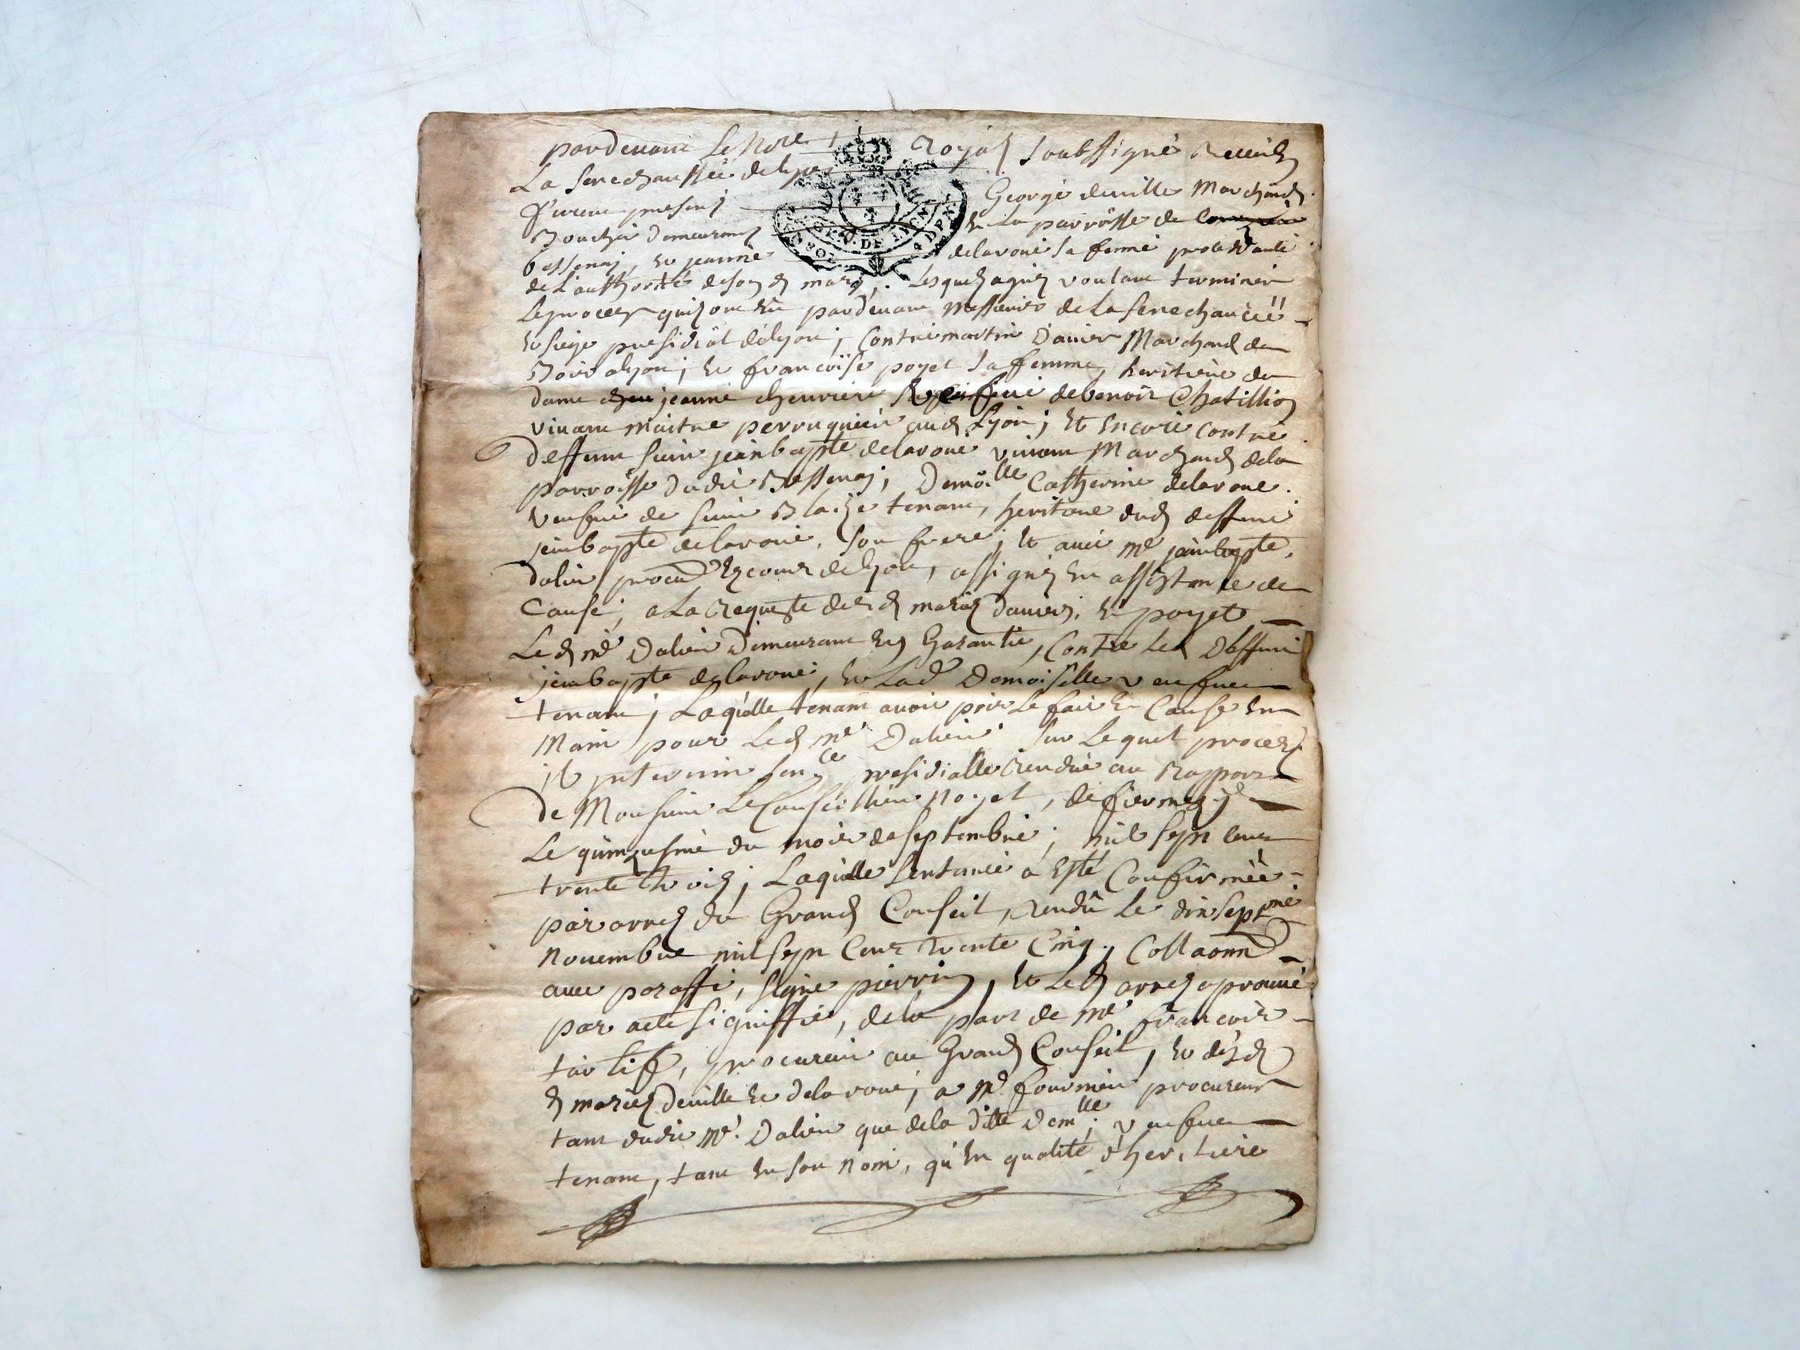 pardevant Le No.re royal soubssigné
La Senechaussée de Lyon
furent presents George deville Marchand
Boucher demeurant en La parroisse de
bessenay, et jeanne delavoué sa femme
de L'authorité de son d mary; Lesquels voulant terminer
Le procès quils ont eu pardevant Messieurs de La Senechaucée
et siege presidial de Lyon, Contre martin Marchand de
a Lyon, et françoise poyet sa femme, heritiere de
dame jeanne cheuriere veufue de benoit Chatillion
vivant Maitre perruquier aud. Lyon; et Encore Contre
deffunt sieur jean bapte delavoue vivant Marchand de la
parroisse dudit Bessenay; Demoi.lle Catherine delavoue
veufue de sieur Blaize tenant, heritiere dud deffunt
jean bapte delavoué, son frere; et avec me jean bapte
Dalier procu.r Es cours de Lyon, assigné En assistance de
Cause, a La requeste desd mariés et poyet
Led me Dalier Demeurant En Garantie, Contre Led Deffunt
jean bapte delavoué, et Lad. Demoiselle veufue
tenant; Laquelle tenant avoit pris Le fait et Cause En
Main pour Led me Dalier; Sur Lequel procès
il intervint sen.ce presidialle rendüe au Rapport
de Monsieur Le Conseillier Noyel,
Le quinzesme du mois de septembre, mil sept cent
trente trois; Laquelle Sentance a Esté Confirmée
par arrest du Grand Conseil, rendu Le dix sept.me
Nouembre mil sept Cent trente Cinq, Collaonné
avec paraffe, signé pierrin, et Led arrest
par acte signiffié, de la part de me françois
tartif, procureur au Grand Conseil, et desd
d mariés Deville et delavoué, a Me fournier procureur
tant dudit me. Dalier que de la ditte dem.lle veufue
tenant, tant En son nom, qu'En qualité d'heritiere